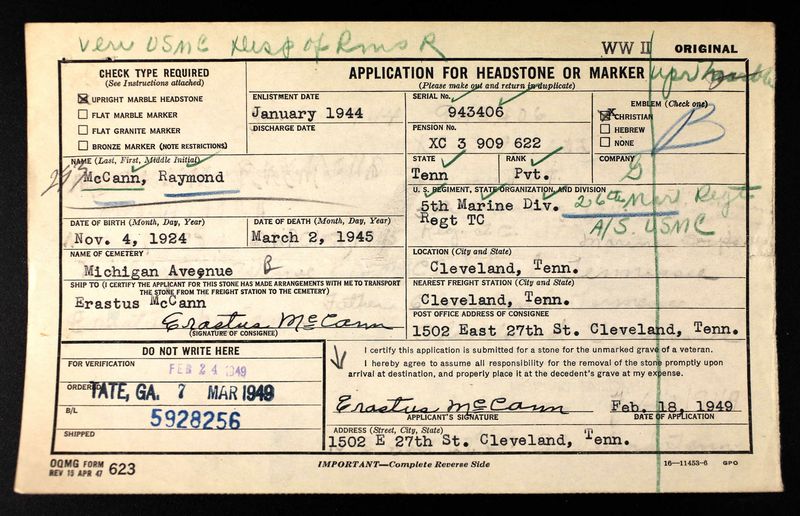 Veri USMC Disp of Rms R
WW II ORIGINAL
CHECK TYPE REQUIRED
(See Instructions attached)
X UPRIGHT MARBLE HEADSTONE
FLAT MARBLE MARKER
FLAT GRANITE MARKER
BRONZE MARKER (NOTE RESTRICTIONS)
APPLICATION FOR HEADSTONE OR MARKER upr
(Please make out and return in duplicate)
ENLISTMENT DATE
January 1944
DISCHARGE DATE
SERIAL No.
943406
PENSION No.
XC 3 909 622
EMBLEM (Check one)
X CHRISTIAN
HEBREW
NONE
B
NAME (Last, First, Middle Initial)
McCann, Raymond
STATE
Tenn
RANK
Pvt.
COMPANY
G
U. S. REGIMENT, STATE ORGANIZATION, AND DIVISION
5th Marine Div. 26th Mar. Regt
Regt TC A/S. USMC
DATE OF BIRTH (Month, Day, Year)
Nov. 4, 1924
DATE OF DEATH (Month, Day, Year)
March 2, 1945
NAME OF CEMETERY
Michigan Aveenue B
LOCATION (City and State)
Cleveland, Tenn.
SHIP TO (I CERTIFY THE APPLICANT FOR THIS STONE HAS MADE ARRANGEMENTS WITH ME TO TRANSPORT
THE STONE FROM THE FREIGHT STATION TO THE CEMETERY)
Erastus McCann
Erastus McCann
(SIGNATURE OF CONSIGNEE)
NEAREST FREIGHT STATION (City and State)
Cleveland, Tenn.
POST OFFICE ADDRESS OF CONSIGNEE
1502 East 27th St. Cleveland, Tenn.
DO NOT WRITE HERE
FOR VERIFICATION
FEB 24 1949
ORDERED
TATE, GA. 7 MAR 1949
B/L
5928256
SHIPPED
I certify this application is submitted for a stone for the unmarked grave of a veteran.
I hereby agree to assume all responsibility for the removal of the stone promptly upon
arrival at destination, and properly place it at the decedent's grave at my expense.
Erastus McCann Feb. 18, 1949
APPLICANT'S SIGNATURE DATE OF APPLICATION
ADDRESS (Street, City, State)
1502 E 27th St. Cleveland, Tenn.
OQMG FORM
REV 15 APR 47 623
IMPORTANT—Complete Reverse Side
16—11453-6 GPO